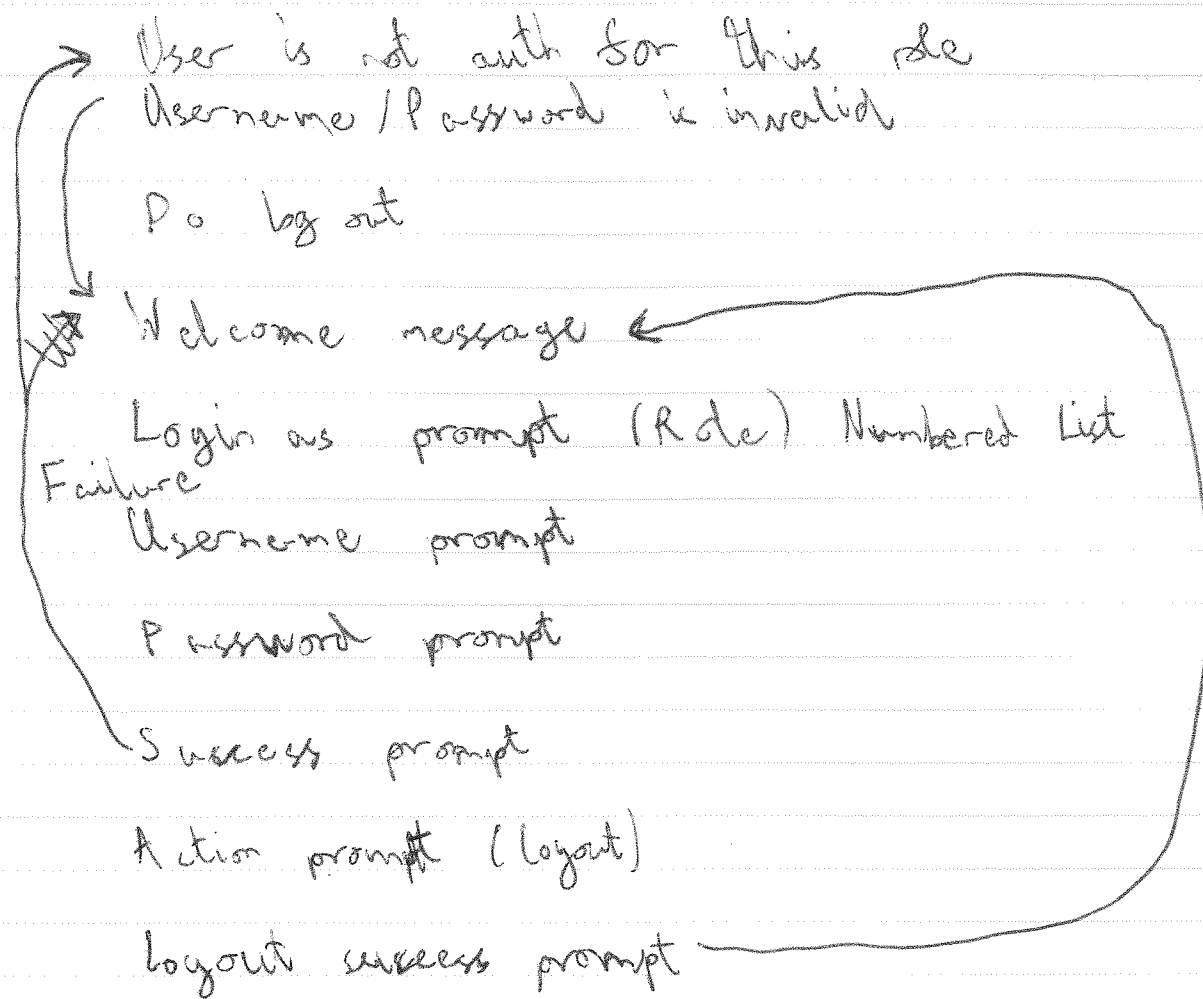 User is not auth for this role
Username/Password is invalid
Do log out
Welcome message
Login as prompt (Role) Numbered List
Failure
Username prompt
Password prompt
Success prompt
Action prompt (logout)
Logout success prompt